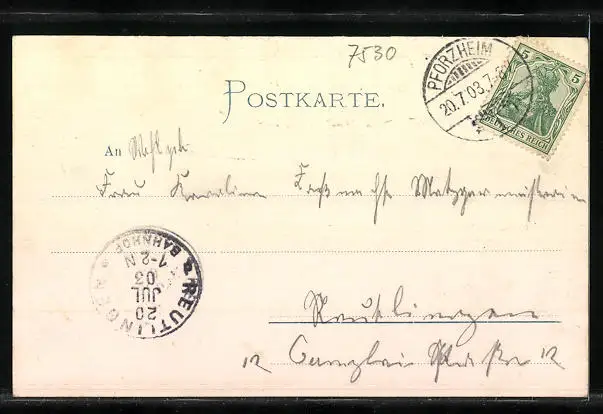 7530
PFORZHEIM
20.7.03.7-8
5 5
DEUTSCHES REICH
POSTKARTE.
An
Frau Karoline Metzgermeisterin
REUTLINGEN
BAHNHOF
1-2 N
03
JUL
20
Reutlingen
12 Canzlei Straße 12